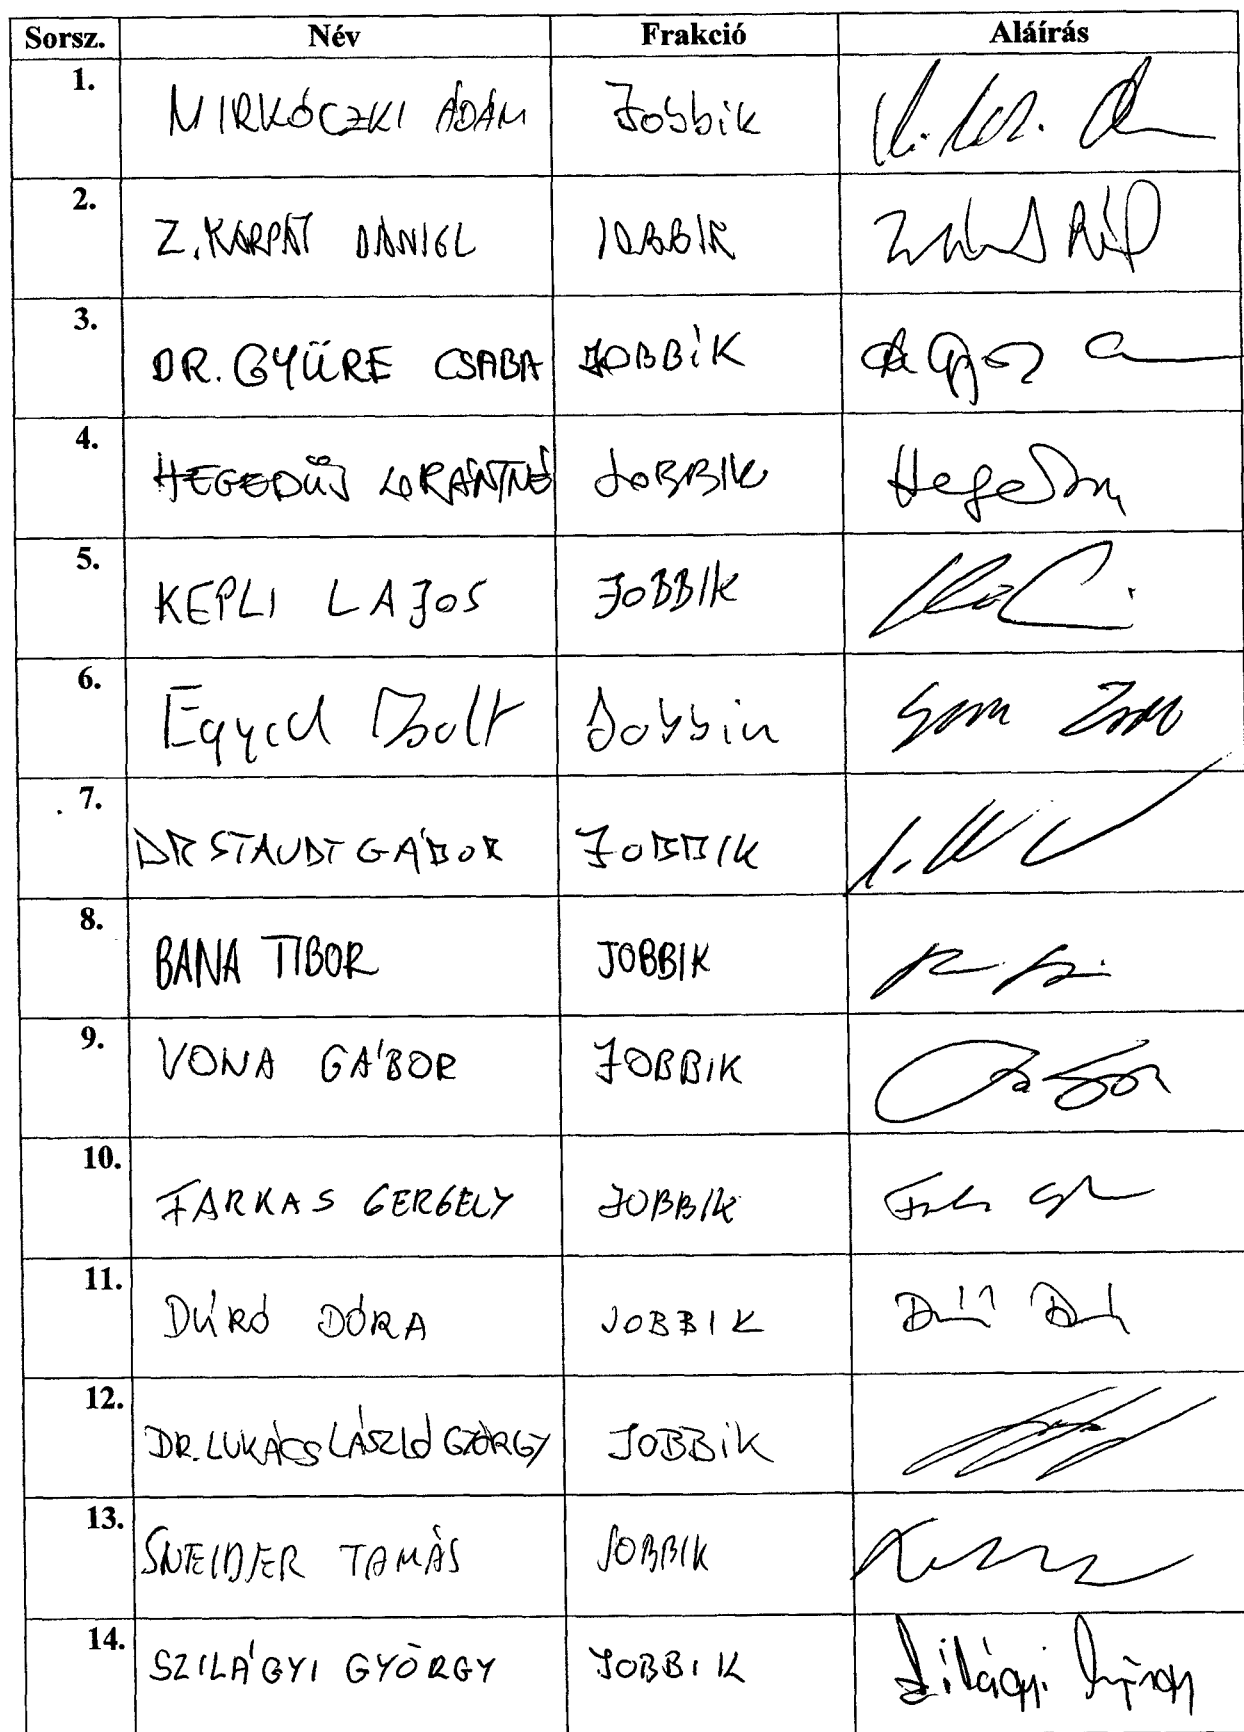 Sorsz. Név Frakció Aláírás
1. MIRKÓCZKI ÁDÁM Jobbik
2. Z. KÁRPÁT DÁNIEL JOBBIK
3. DR. GYÜRE CSABA JOBBIK
4. HEGEDŰS LORÁNTNÉ JOBBIK
5. KEPLI LAJOS JOBBIK
6. Egyed Zsolt Jobbik
7. DR STAUDT GÁBOR JOBBIK
8. BANA TIBOR JOBBIK
9. VONA GÁBOR JOBBIK
10. FARKAS GERGELY JOBBIK
11. DÚRÓ DÓRA JOBBIK
12. DR. LUKÁCS LÁSZLÓ GYÖRGY JOBBIK
13. SNEIDER TAMÁS JOBBIK
14. SZILÁGYI GYÖRGY JOBBIK Szilágyi György